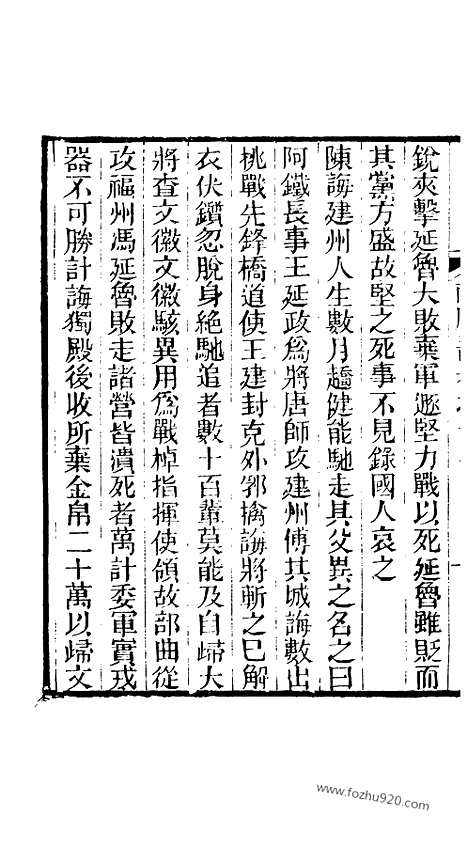 銳夾擊延魯大敗棄軍遯堅力戰以死延魯雖貶而
其黨方盛故堅之死事不見錄國人哀之
陳誨建州人生數月趫健能馳走其父異之名之曰
阿鐵長事王延政爲將唐師攻建州傅其城誨數出
桃戰先鋒橋道使王建封克外郛擒誨將斬之已解
衣伏鑕忽脫身絶馳追者數十百輩莫能及自歸大
將查文徽文徽駭異用爲戰棹指揮使領故部曲從
攻福州馮延魯敗走諸營皆潰死者萬計委軍實戎
器不可勝計誨獨殿後收所棄金帛二十萬以歸文
www.fozhu920.com